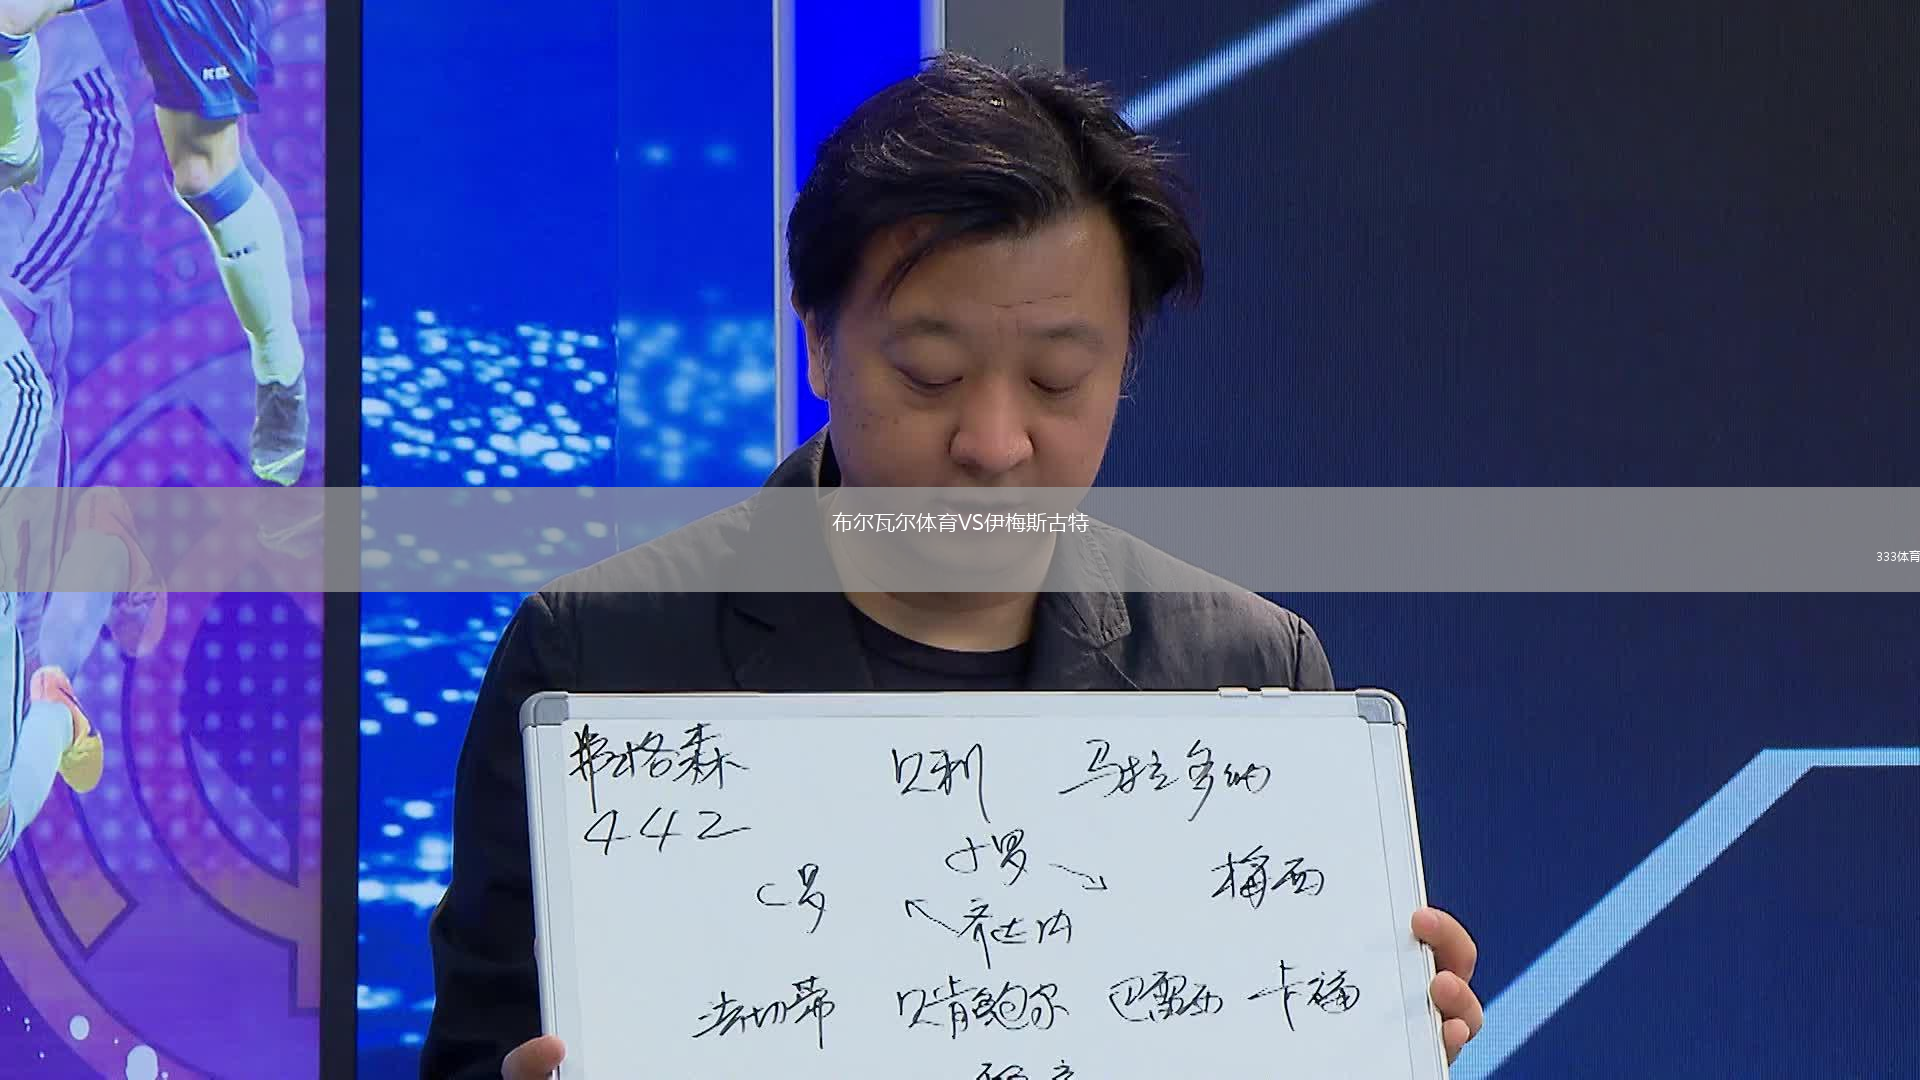 布尔瓦尔体育VS伊梅斯古特
333体育
弗格森 贝利 马拉多纳
442
小罗
C罗 梅西
齐达内
法切蒂 贝肯鲍尔 巴雷西 卡福